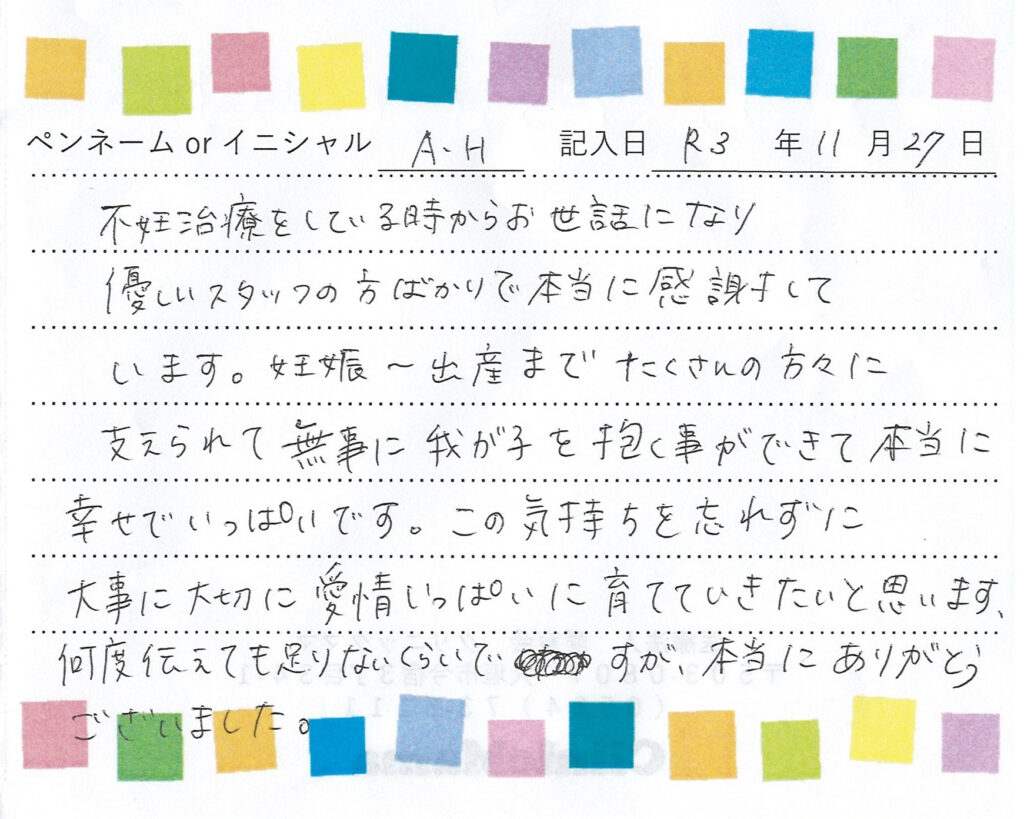 ペンネーム or イニシャル A.H 記入日 R3 年 11 月 27 日
不妊治療をしている時からお世話になり
優しいスタッフの方ばかりで本当に感謝して
います。妊娠〜出産までたくさんの方々に
支えられて無事に我が子を抱く事ができて本当に
幸せでいっぱいです。この気持ちを忘れずに
大事に大切に愛情いっぱいに育てていきたいと思います、
何度伝えても足りないくらいですが、本当にありがとう
ございました。